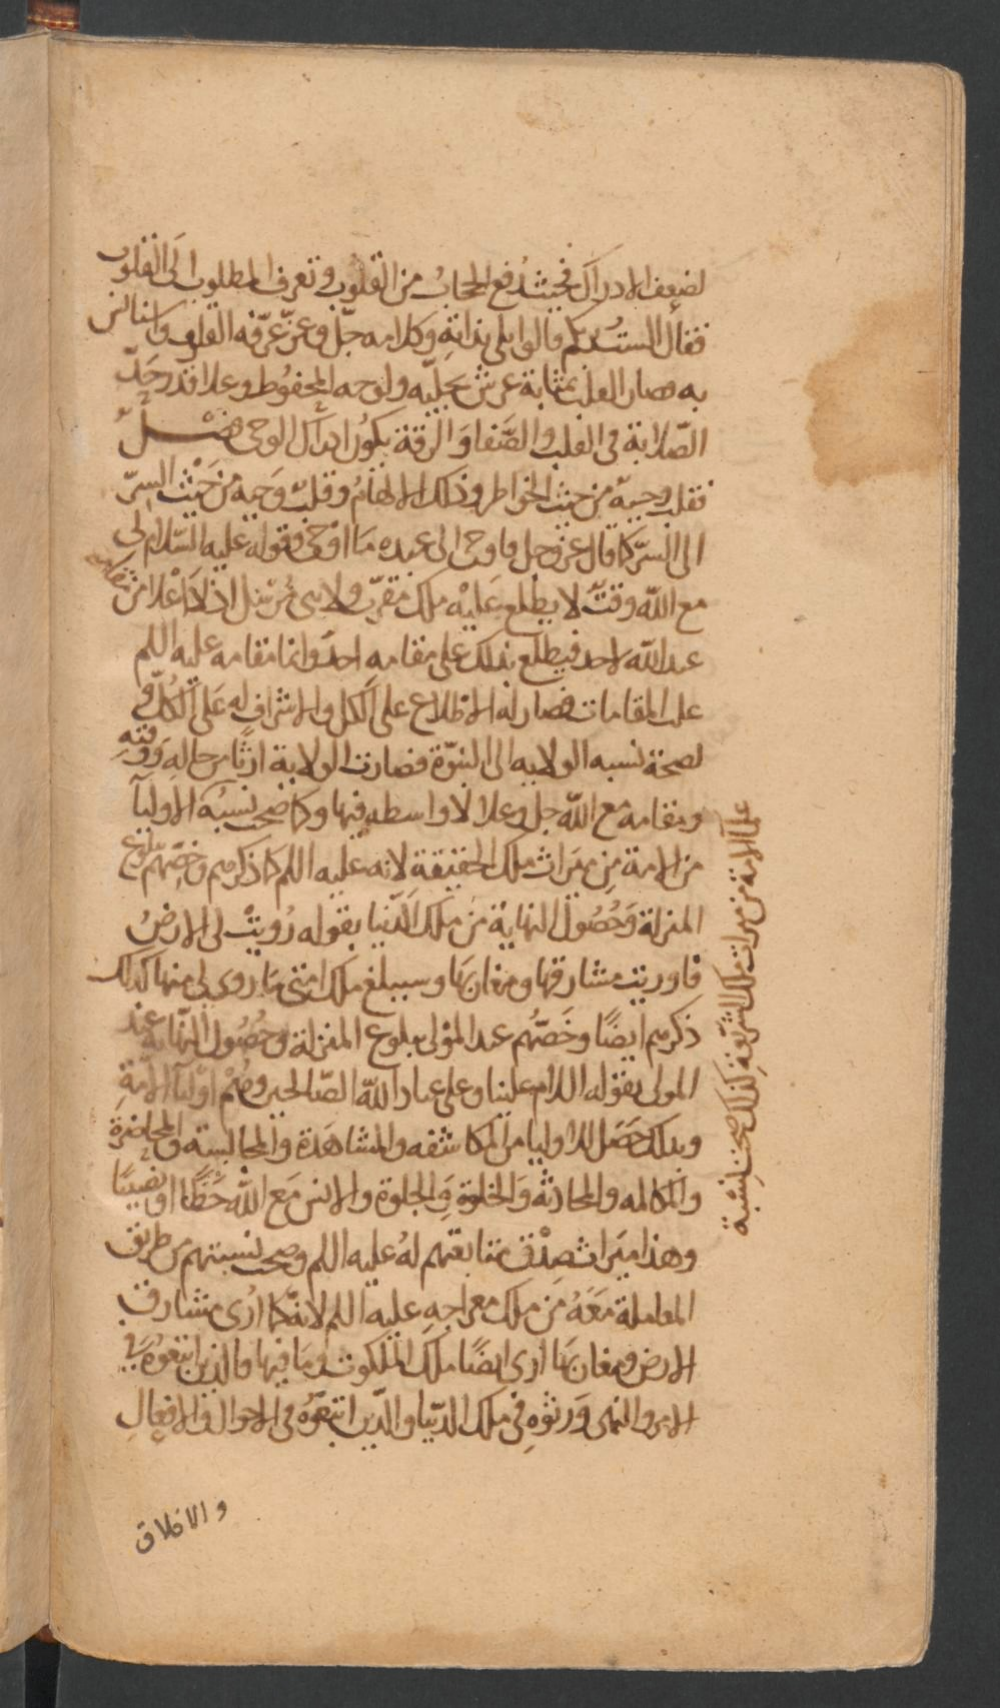 لضعف الادراك فحينئذ رُفع الحجابُ من القلوب وتعرف المطلوب الى القلوب
فقال الستُ بربكم قالوا بلى بذاته وكلامه جلّ وعزّ عرّفه القلوب واستانس
به فصار القلب بمثابة عرش تجليه ولوحه المحفوظ وعلا قدر حَدّ
الصّلابة في القلب والصّفا والرقة يكون ادراك الوحي فصل
فقلب وحيه من حيث الخواطر وذلك الالهامُ وقلب وَحيه من حَيْث السِرّ
الى السرّ كما قال عز وجل فاوحى الى عبده مَا اوْحى وقوله عليه السّلام لي
مع الله وقتٌ لا يطلع عَليْه ملك مقرّب ولا نبي مُرسَل اذ لا اعْلا من مقامه
عند الله لاحد فيطلع بذلك على مقامه احدٌ وانما مقامه عليه اللم
على المقامات فصار له الاطلاع على الكل والاشراف له عَلى الكُلّ و
لصحة نسبه الولايه الى النبوّة فصارت الولاية ارثًا من حالهِ وَوقتهِ
ومقامه مع الله جل وعلا لا واسطه فيها وكما صحت نسبَه الاوليآ
من الامة مِن ميَراث ملك الحقيقة لانه عليه اللم كما ذكرهم وخصّهم ببلوغ
المنزلة وَحُصُول النهاية مَن ملك الدّنيا بقوله زُويتْ لي الارضُ
فاوريت مشارقها ومغاربَها وسيبلغ ملك امتي مَا زوى لي منها كذلك
ذكرهم ايضًا وخَصّهُم عند المَوْلى ببلوع المنزلة وحُصُول النّهاية عند
المولى بقوله اللام علينا وعلى عباد الله الصّالحين وهُمْ اوْليآ الامةِ
وبذلك حَصَل للاوليا من المكاشفه والمشاهَدة والمجالسته والمحاضرة
والمكالمه والمحادثه وَالخلوة وَالجلوة والانس مَع الله حَظًّا او نصِيبًا
وهذا ميَراث صِدْق متابعتهم لهُ عليه اللم وصحت نسبتهم من طريق
المعاملة مَعَهُ مَن ملك معراجهِ عليه اللم لانّه كما اُرى مشارق
الارض ومغاربَها اُرى ايضًا ملك الملكوت ومَا فيها فالذين اتبعَوُه في
الامر والنهى وَرثوهِ في ملك الدّنيا والّذين اتبعَوُه في الاحوال والافعالِ
والاخلاق
على الامة من ميراث ملك الشريعة كذلك صحت نسبة